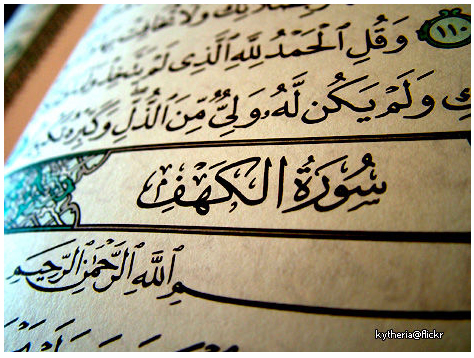 ١١٠
وَقُلِ ٱلْحَمْدُ لِلَّهِ ٱلَّذِى لَمْ يَتَّخِذْ
وَلَمْ يَكُن لَّهُۥ وَلِىٌّ مِّنَ ٱلذُّلِّ وَكَبِّرْهُ
سُورَةُ الكَهْفِ
بِسْمِ ٱللَّهِ ٱلرَّحْمَٰنِ ٱلرَّحِيمِ
kytheria@flickr